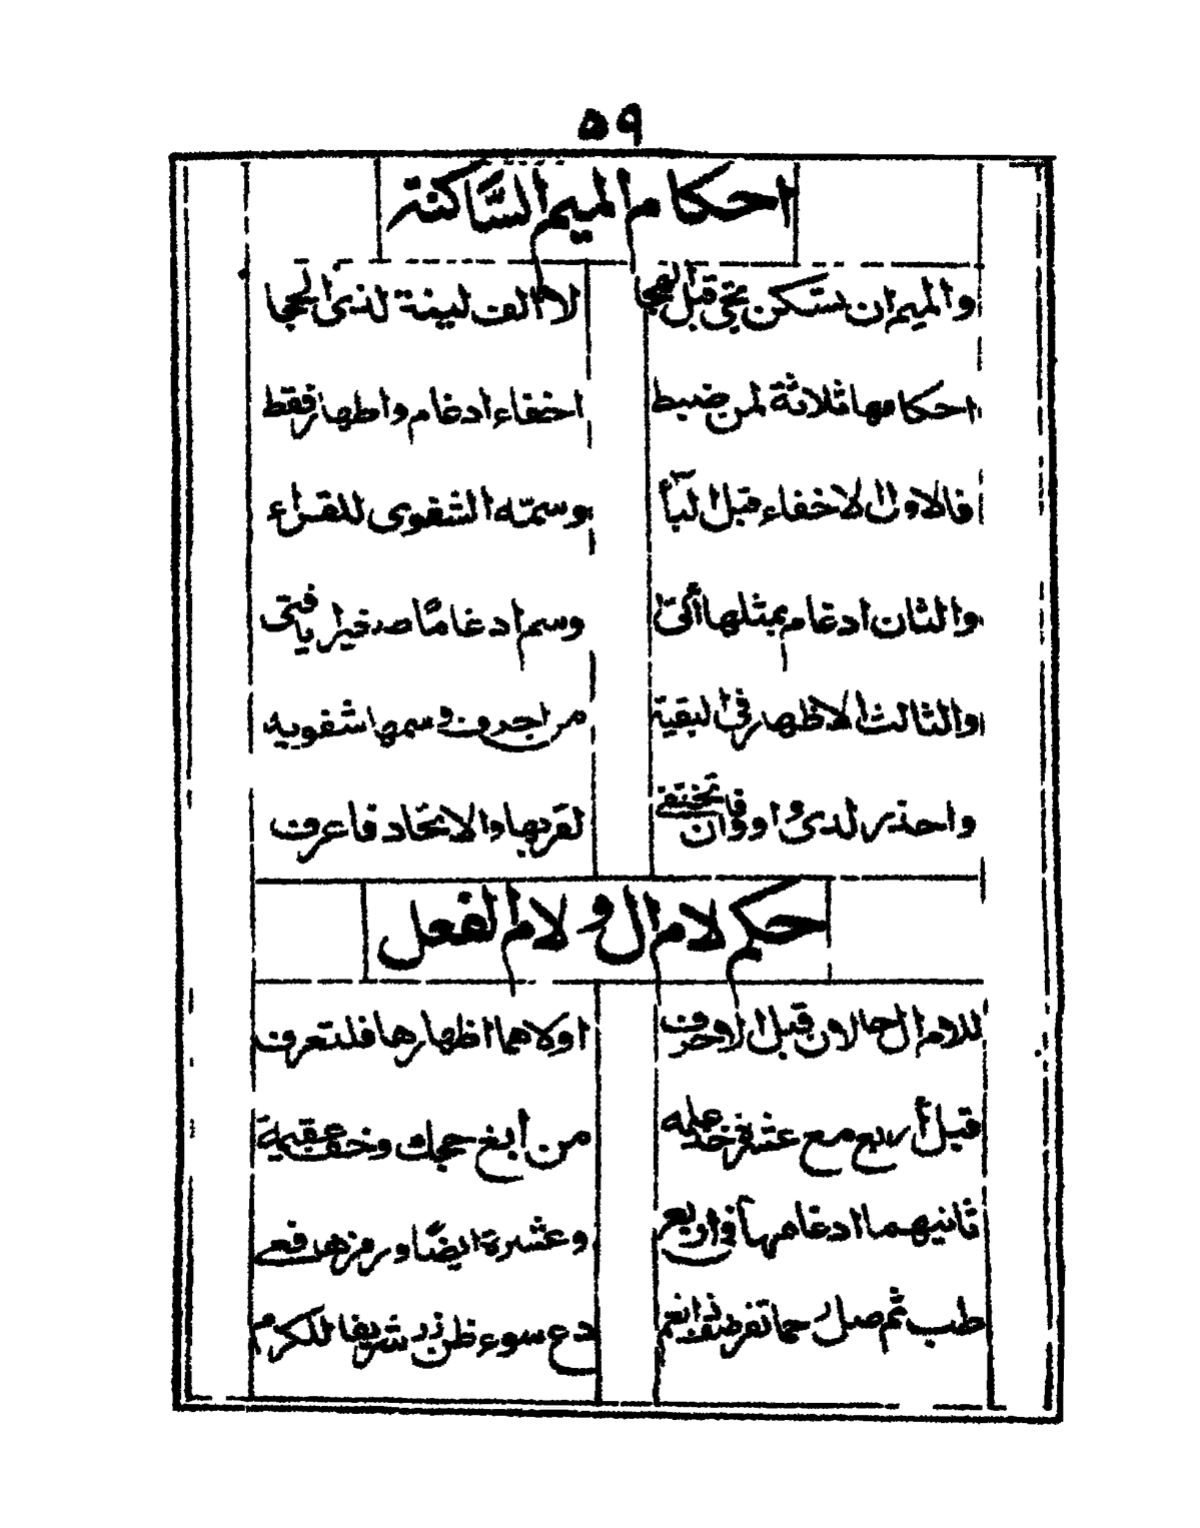 ٥٩
احكام الميم السّاكنة
والميم ان تسكن تجى قبل الهجا لا الف لينة لذى الحجا
احكامها ثلاثة لمن ضبط اخفاء ادغام واظهار فقط
فالاول الاخفاء قبل البأ وسمّه الشفوى للقراء
والثان ادغام بمثلها أتى وسم ادغامًا صغيرا يا فتى
والثالث الاظهار فى البقية من احرف وسمها شفويه
واحذر لدى واو وفا ان تختفى لقربها والاتحاد فاعرف
حكم لام ال و لام الفعل
للام ال حالان قبل الاحرف اولاهما اظهارها فلتعرف
قبل أربع مع عشرة خذ علمه من أبغ حجك وخف عقيمه
ثانيهما ادغامها فى اربع وعشرة ايضًا ورمزها فعى
طب ثم صل رحما تفز ضف ذا نعم دع سوء ظن زر شريفا للكرم